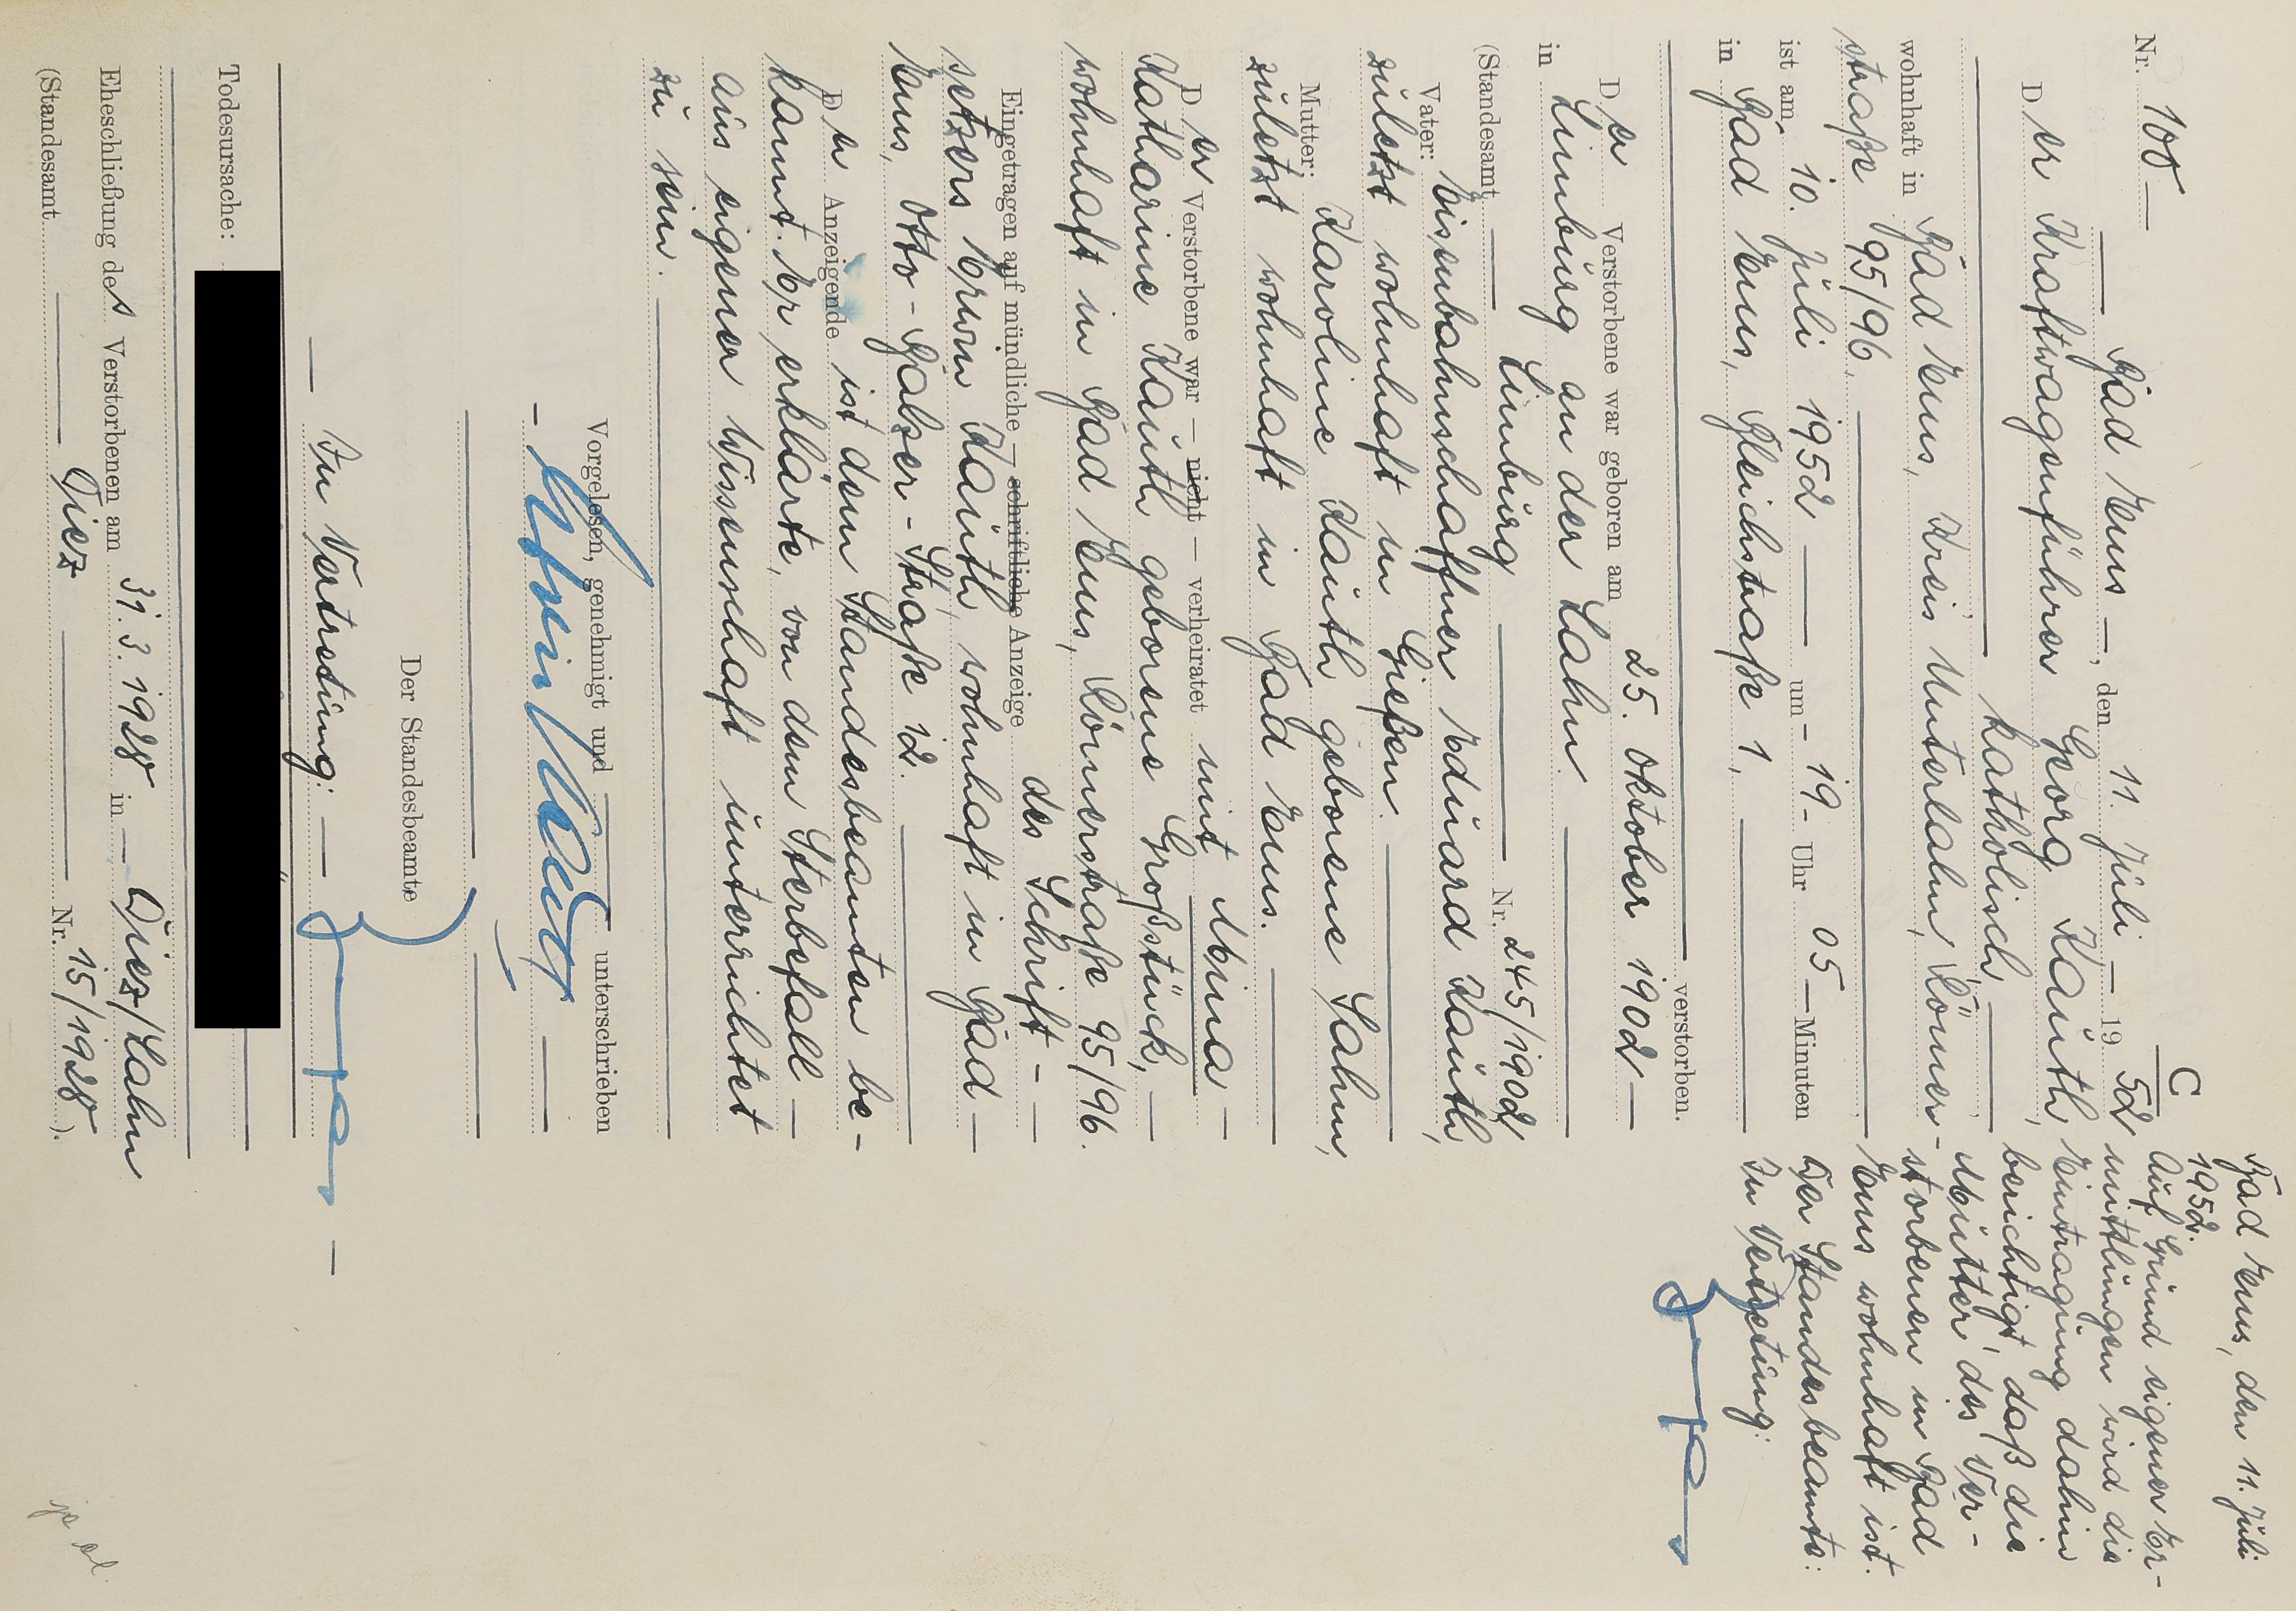 C
Nr. 108
Bad Ems, den 11. Juli 1952
Der Kraftwagenführer Georg Kauth,
katholisch,
wohnhaft in Bad Ems, Kreis Unterlahn, Römer-
straße 95/96,
ist am 10. Juli 1952 um 19 Uhr 05 Minuten
in Bad Ems, Bleichstraße 1,
verstorben.
Der Verstorbene war geboren am 25. Oktober 1902
in Limburg an der Lahn
(Standesamt Limburg Nr. 245/1902
Vater: Eisenbahnschaffner Eduard Kauth,
zuletzt wohnhaft in Gießen.
Mutter: Karoline Kauth geborene Sahm,
zuletzt wohnhaft in Bad Ems.
Der Verstorbene war — nicht — verheiratet mit Mina
Katharine Kauth geborene Großstück,
wohnhaft in Bad Ems, Römerstraße 95/96.
Eingetragen auf mündliche — schriftliche Anzeige des Schrift-
setzers Erwin Kauth, wohnhaft in Bad
Ems, Otto-Balzer-Straße 12.
Der Anzeigende ist dem Standesbeamten be-
kannt. Er erklärte, von dem Sterbefall
aus eigener Wissenschaft unterrichtet
zu sein.
Vorgelesen, genehmigt und unterschrieben
Erwin Kauth
Der Standesbeamte
In Vertretung:
Todesursache:
Eheschließung des Verstorbenen am 31.3.1928 in Diez/Lahn
(Standesamt Diez Nr. 15/1928).
Bad Ems, den 11. Juli
1952.
Auf Grund eigener Er-
mittlungen wird die
Eintragung dahin
berichtigt, daß die
Mutter des Ver-
storbenen in Bad
Ems wohnhaft ist.
Der Standesbeamte:
In Vertretung: